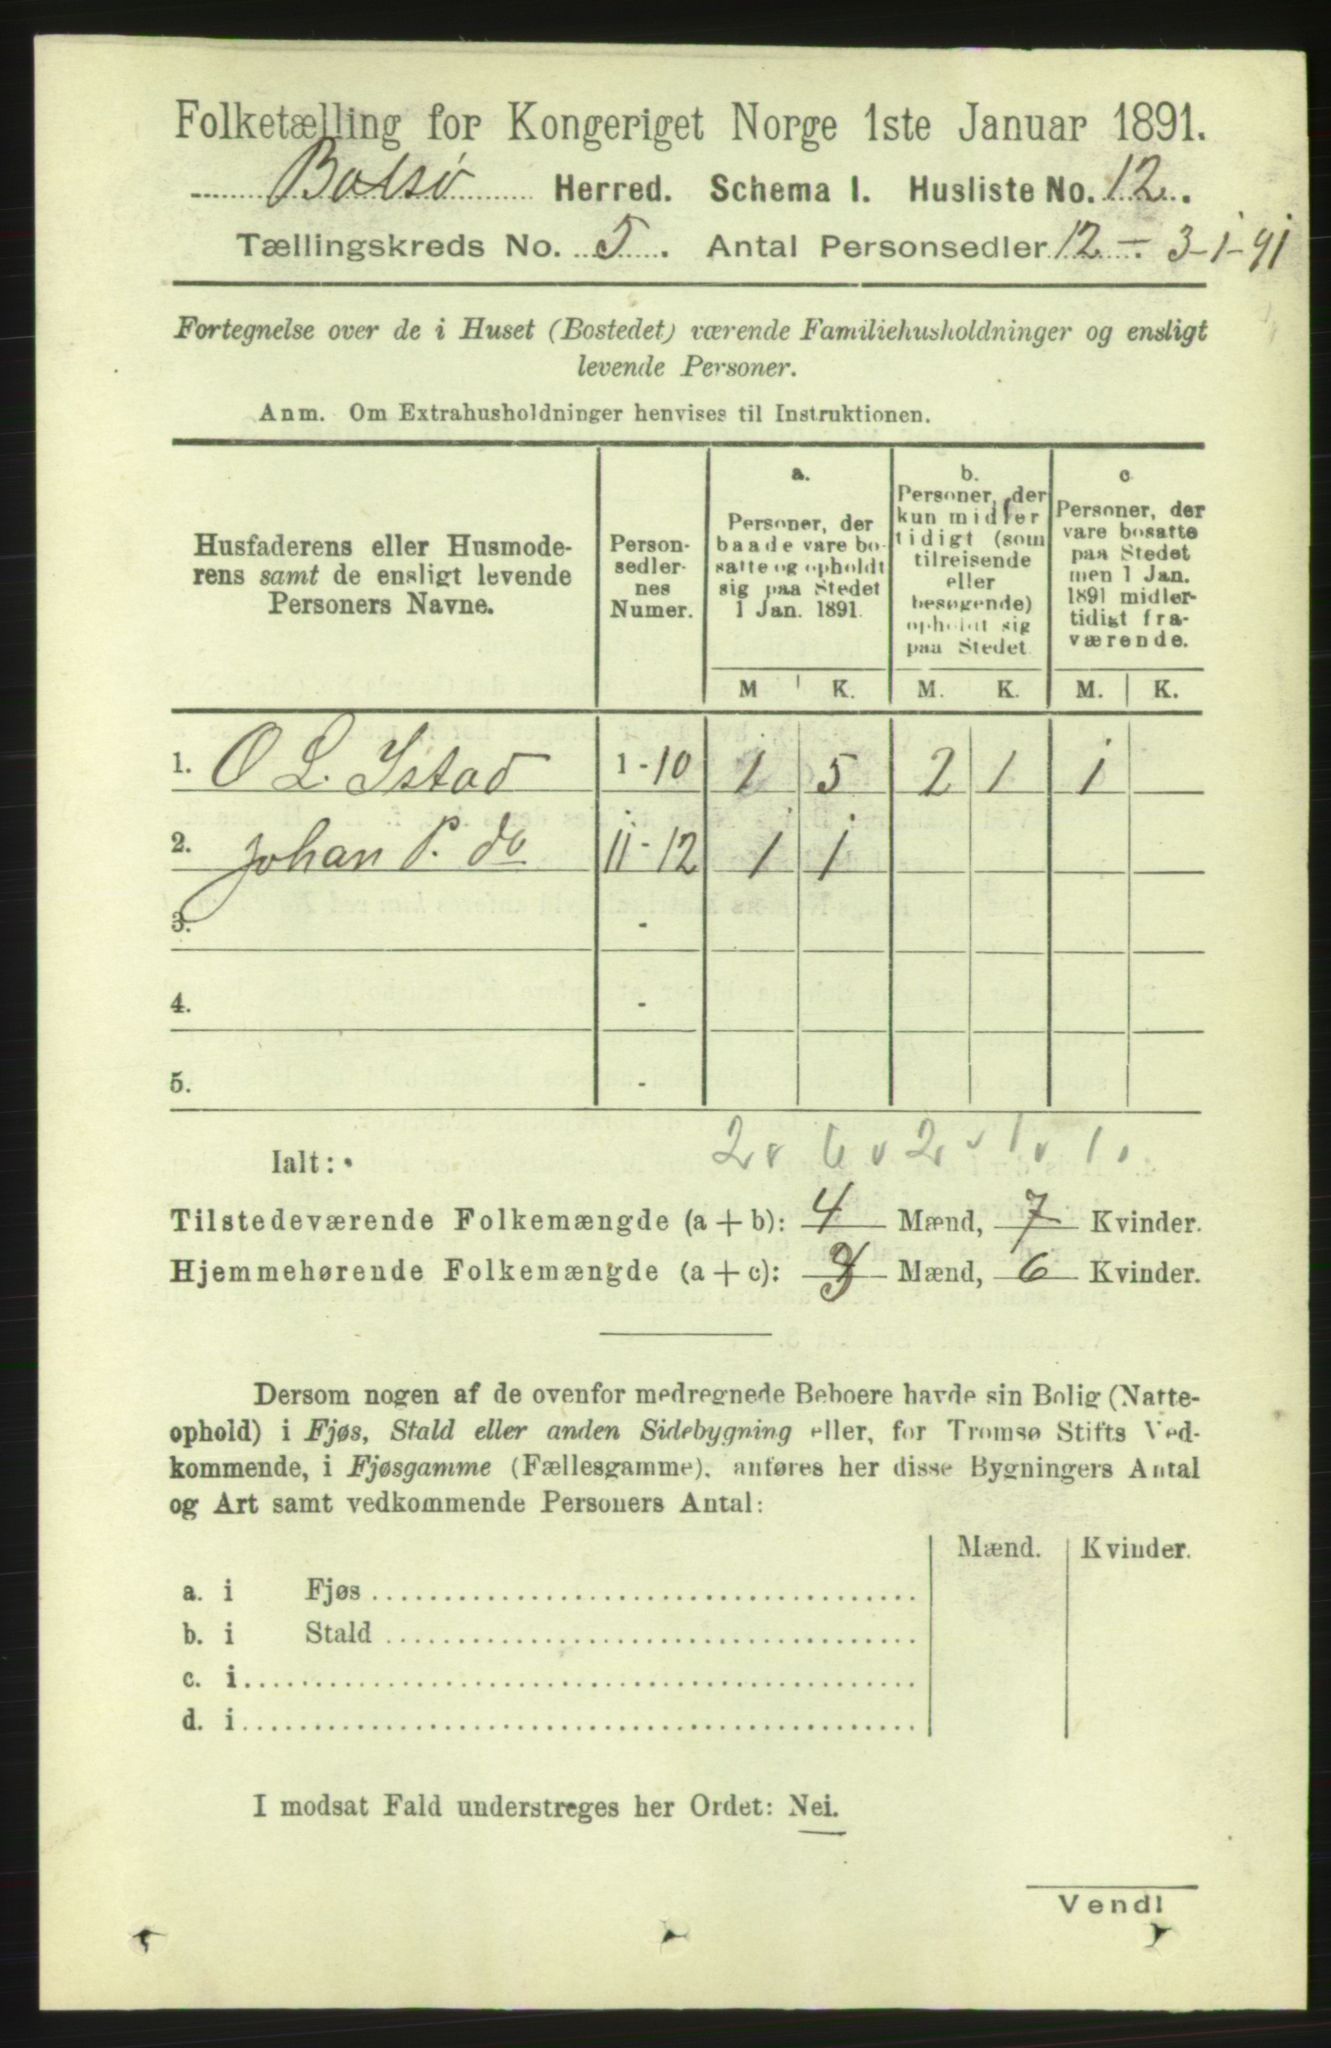 Folketælling for Kongeriget Norge 1ste Januar 1891.
Bolsø Herred. Schema I. Husliste No. 12.
Tællingskreds No. 5. Antal Personsedler 12 - 3-1-91
Fortegnelse over de i Huset (Bostedet) værende Familiehusholdninger og ensligt
levende Personer.
Anm. Om Extrahusholdninger henvises til Instruktionen.
Husfaderens eller Husmode-
rens samt de ensligt levende
Personers Navne.
Person-
sedler-
nes
Numer.
a.
Personer, der
baade vare bo-
satte og opholdt
sig paa Stedet
1 Jan. 1891.
b.
Personer, der
kun midler
tidigt (som
tilreisende
eller
besøgende)
opholdt sig
paa Stedet.
c
Personer, der
vare bosatte
paa Stedet
men 1 Jan.
1891 midler-
tidigt fra-
værende.
M K. M. K. M. K.
1. O L. Istad 1-10 1 5 2 1 1
2. Johan P. do 11-12 1 1
3. -
4. -
5. -
Ialt: 2 6 2 1 1
Tilstedeværende Folkemængde (a + b): 4 Mænd, 7 Kvinder.
Hjemmehørende Folkemængde (a + c): 3 Mænd, 6 Kvinder.
Dersom nogen af de ovenfor medregnede Beboere havde sin Bolig (Natte-
ophold) i Fjøs, Stald eller anden Sidebygning eller, for Tromsø Stifts Ved-
kommende, i Fjøsgamme (Fællesgamme), anføres her disse Bygningers Antal
og Art samt vedkommende Personers Antal:
Mænd. Kvinder.
a. i Fjøs
b. i Stald
c. i
d. i
I modsat Fald understreges her Ordet: Nei.
Vend!